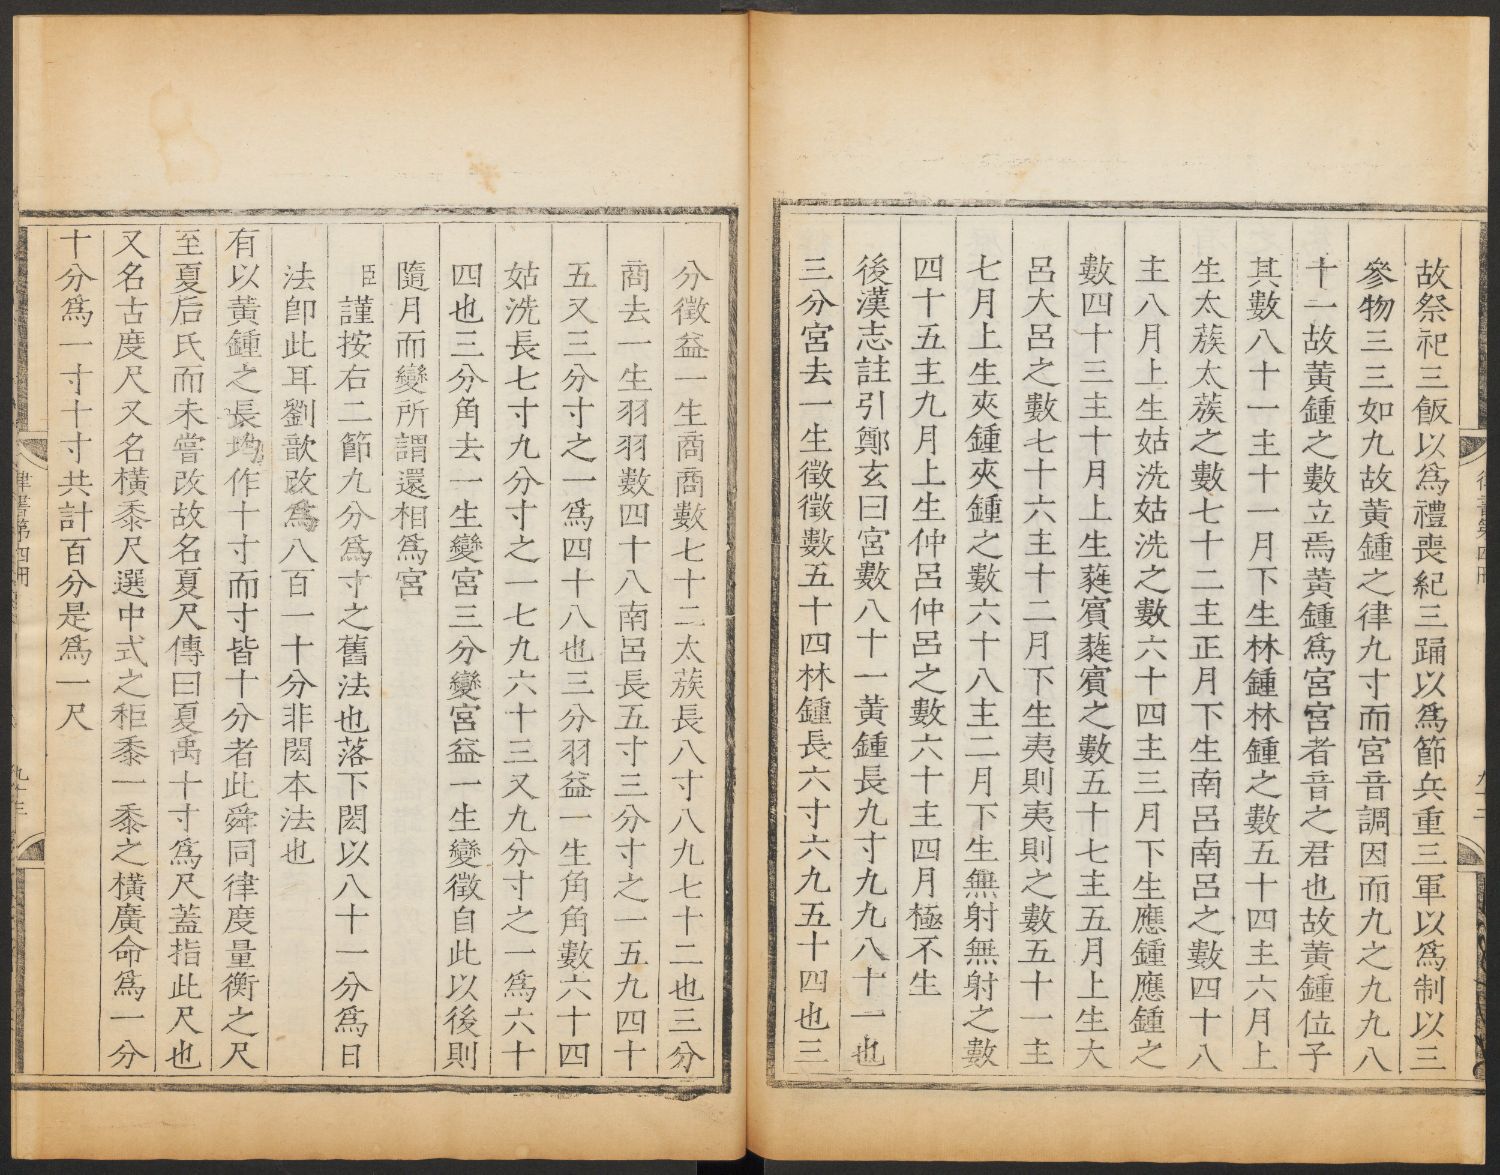 故祭祀三飯以爲禮喪紀三踊以爲節兵重三軍以爲制以三
參物三三如九故黄鍾之律九寸而宮音調因而九之九九八
十一故黄鍾之數立焉黄鍾爲宮宮者音之君也故黄鍾位子
其數八十一主十一月下生林鍾林鍾之數五十四主六月上
生太蔟太蔟之數七十二主正月下生南呂南呂之數四十八
主八月上生姑洗姑洗之數六十四主三月下生應鍾應鍾之
數四十三主十月上生蕤賓蕤賓之數五十七主五月上生大
呂大呂之數七十六主十二月下生夷則夷則之數五十一主
七月上生夾鍾夾鍾之數六十八主二月下生無射無射之數
四十五主九月上生仲呂仲呂之數六十主四月極不生
後漢志註引鄭玄曰宮數八十一黄鍾長九寸九九八十一也
三分宮去一生徵徵數五十四林鍾長六寸六九五十四也三
分徵益一生商商數七十二太蔟長八寸八九七十二也三分
商去一生羽羽數四十八南呂長五寸三分寸之一五九四十
五又三分寸之一爲四十八也三分羽益一生角角數六十四
姑洗長七寸九分寸之一七九六十三又九分寸之一爲六十
四也三分角去一生變宮三分變宮益一生變徵自此以後則
隨月而變所謂還相爲宮
臣謹按右二節九分爲寸之舊法也落下閎以八十一分爲日
法卽此耳劉歆改爲八百一十分非閎本法也
有以黄鍾之長均作十寸而寸皆十分者此舜同律度量衡之尺
至夏后氏而未嘗改故名夏尺傳曰夏禹十寸爲尺蓋指此尺也
又名古度尺又名橫黍尺選中式之秬黍一黍之橫廣命爲一分
十分爲一寸十寸共計百分是爲一尺